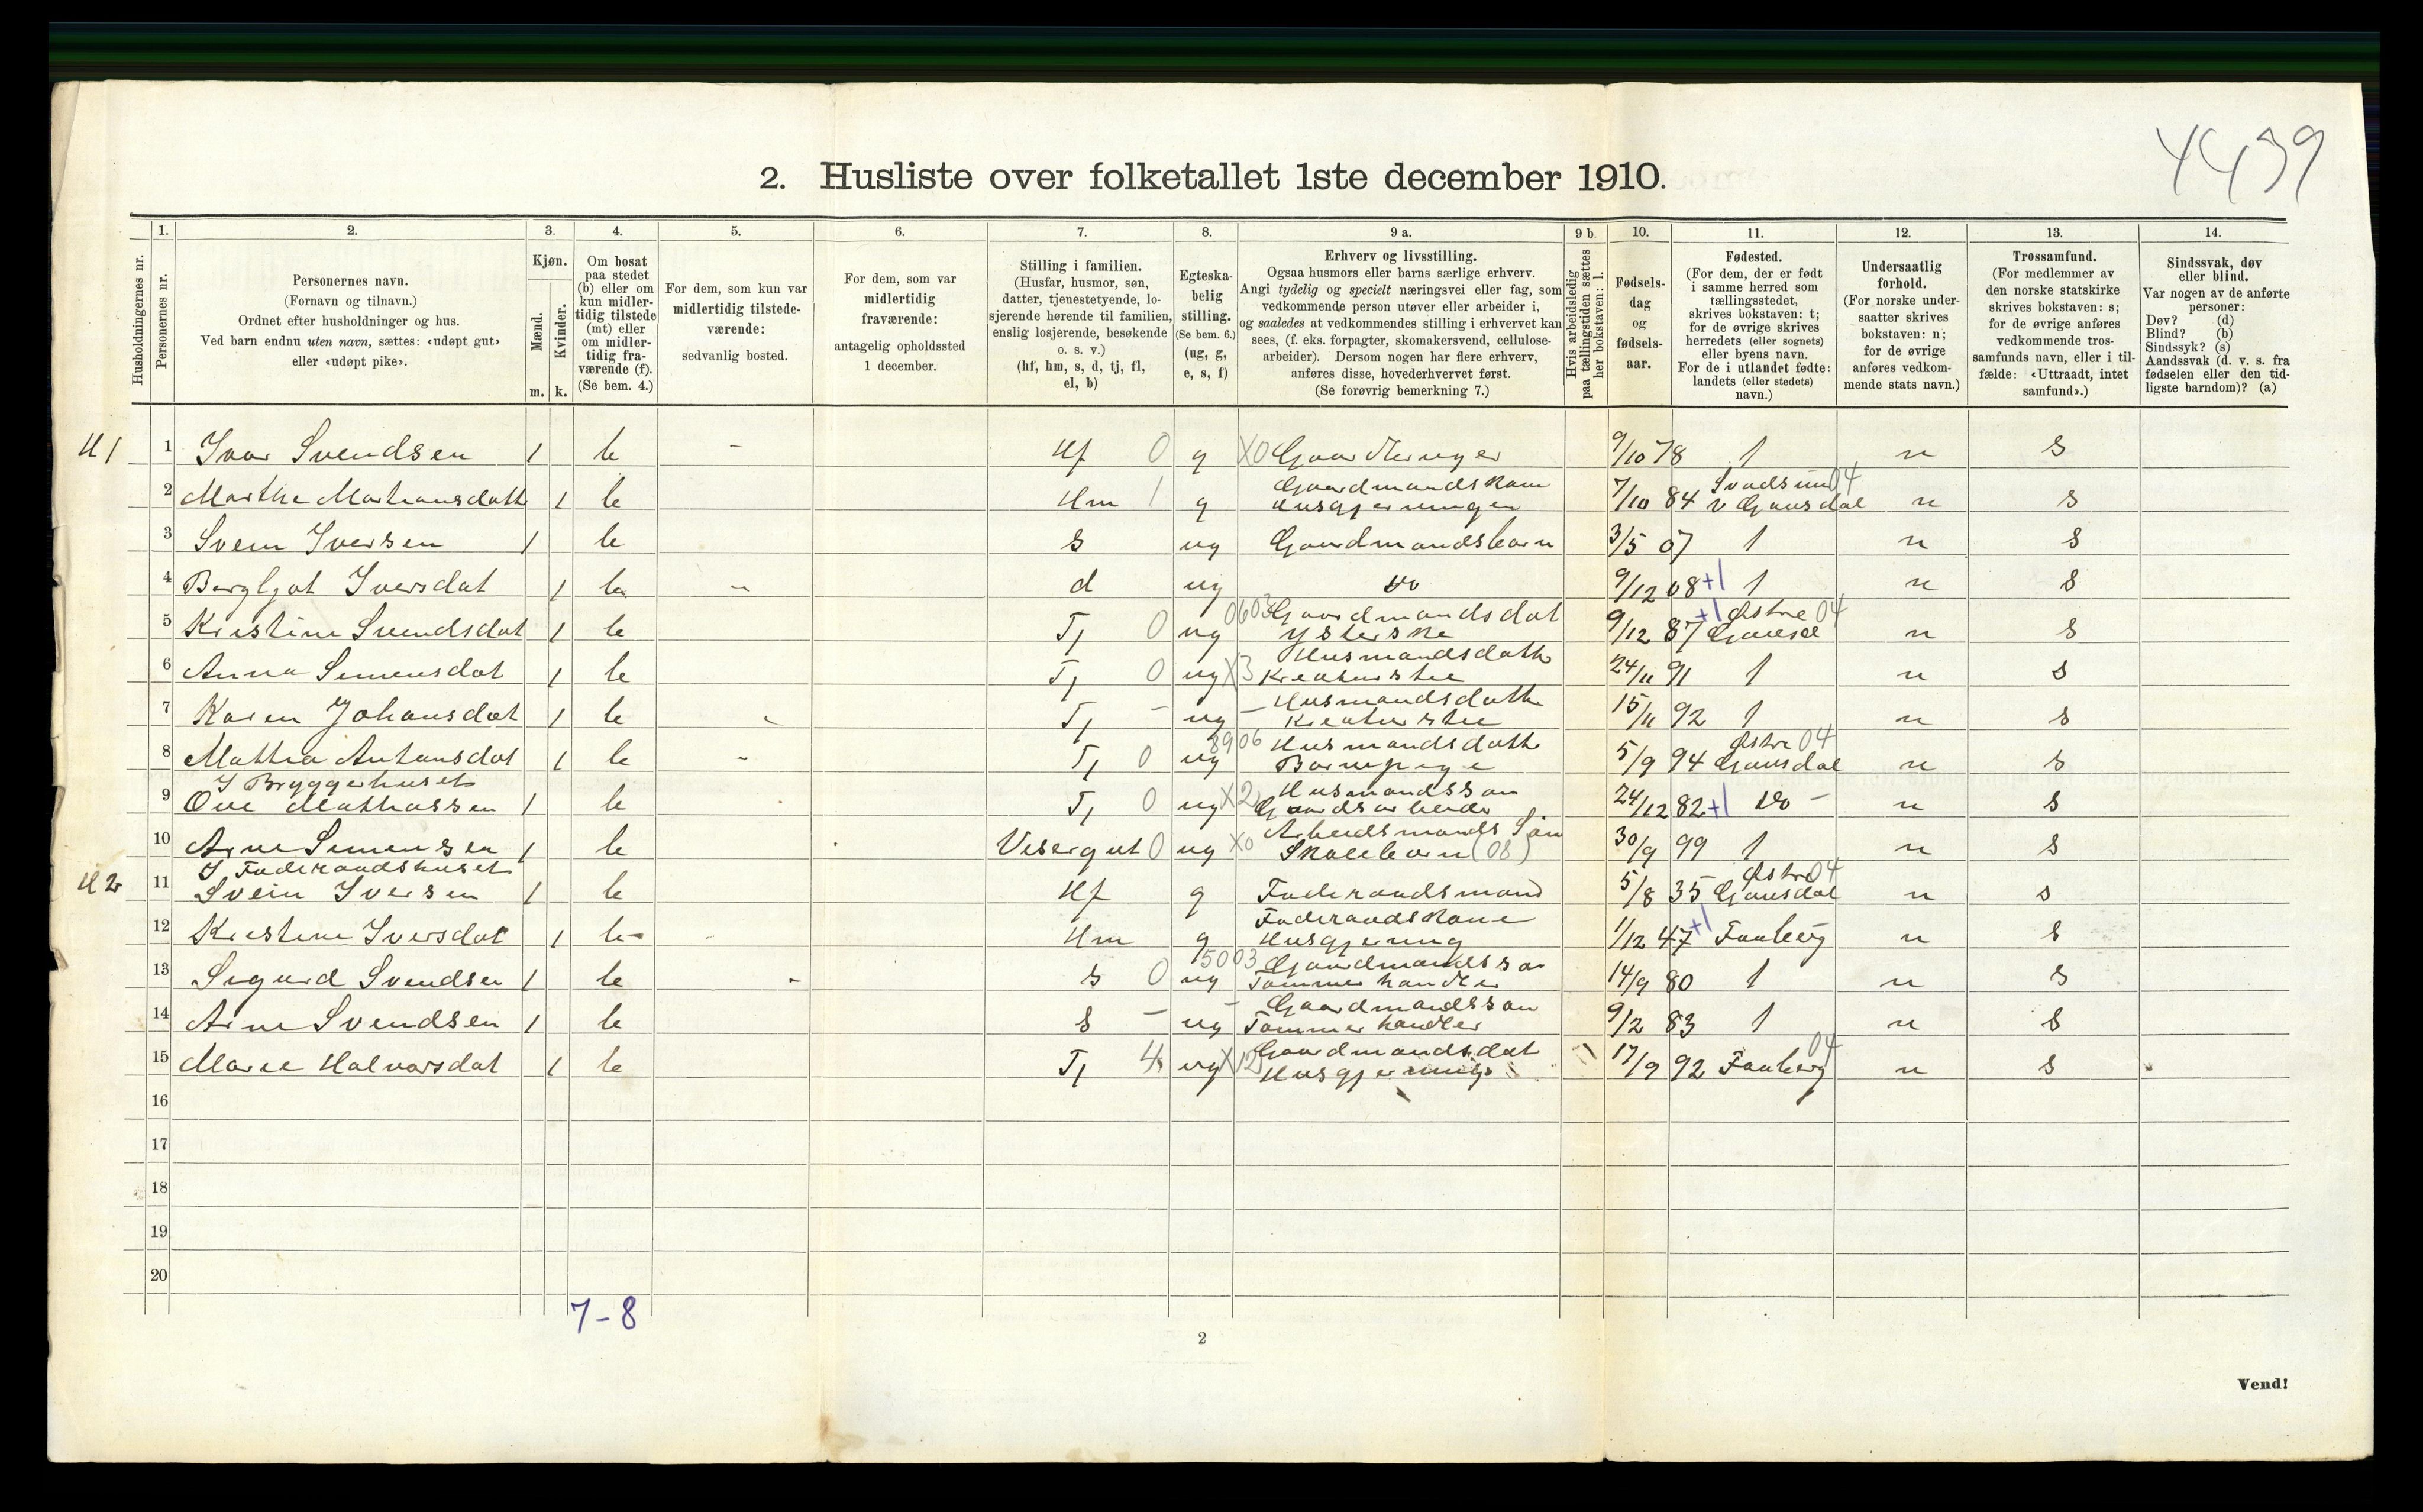 4439
2. Husliste over folketallet 1ste december 1910.
Husholdningernes nr.
1. Personernes nr.
2. Personernes navn.
(Fornavn og tilnavn.)
Ordnet efter husholdninger og hus.
Ved barn endnu uten navn, sættes: «udøpt gut»
eller «udøpt pike».
3. Kjøn.
Mænd. m.
Kvinder. k.
4. Om bosat
paa stedet
(b) eller om
kun midler-
tidig tilstede
(mt) eller
om midler-
tidig fra-
værende (f).
(Se bem. 4.)
5. For dem, som kun var
midlertidig tilstede-
værende:
sedvanlig bosted.
6. For dem, som var
midlertidig
fraværende:
antagelig opholdssted
1 december.
7. Stilling i familien.
(Husfar, husmor, søn,
datter, tjenestetyende, lo-
sjerende hørende til familien,
enslig losjerende, besøkende
o. s. v.)
(hf, hm, s, d, tj, fl,
el, b)
8. Egteska-
belig
stilling.
(Se bem. 6.)
(ug, g,
e, s, f)
9 a. Erhverv og livsstilling.
Ogsaa husmors eller barns særlige erhverv.
Angi tydelig og specielt næringsvei eller fag, som
vedkommende person utøver eller arbeider i,
og saaledes at vedkommendes stilling i erhvervet kan
sees, (f. eks. forpagter, skomakersvend, cellulose-
arbeider). Dersom nogen har flere erhverv,
anføres disse, hovederhvervet først.
(Se forøvrig bemerkning 7.)
9 b. Hvis arbeidsledig
paa tællingstiden sættes
her bokstaven: l.
10. Fødsels-
dag
og
fødsels-
aar.
11. Fødested.
(For dem, der er født
i samme herred som
tællingsstedet,
skrives bokstaven: t;
for de øvrige skrives
herredets (eller sognets)
eller byens navn.
For de i utlandet fødte:
landets (eller stedets)
navn.)
12. Undersaatlig
forhold.
(For norske under-
saatter skrives
bokstaven: n;
for de øvrige
anføres vedkom-
mende stats navn.)
13. Trossamfund.
(For medlemmer av
den norske statskirke
skrives bokstaven: s;
for de øvrige anføres
vedkommende tros-
samfunds navn, eller i til-
fælde: «Uttraadt, intet
samfund».)
14. Sindssvak, døv
eller blind.
Var nogen av de anførte
personer:
Døv? (d)
Blind? (b)
Sindssyk? (s)
Aandssvak (d. v. s. fra
fødselen eller den tid-
ligste barndom)? (a)
H1 1 Ivar Svendsen 1 b - Hf 0 g X0 Gaardbruger 9/10 78 t n s
2 Marthe Mathansdatt 1 b Hm 1 g Gaardmandskone Husgjerningen 7/10 84 04 v Gausdal n s
3 Svein Iversen 1 b s ug Gaardmandsbarn 3/5 07 t n s
4 Bergljot Iversdat 1 b - d ug do 9/12 08 +1 t n s
5 Kristine Svendsdat 1 b Tj 0 ug 0603 Gaardmandsdat ysterske 9/12 87 +1 Østre 04 Gausd n s
6 Anna Simensdat 1 b Tj 0 ug X3 Husmandsdatt Kreaturstel 24/11 91 t n s
7 Karen Johansdat 1 b - Tj - ug - Husmandsdatt Kreaturstel 15/11 92 t n s
8 Mathea Antonsdat 1 b - Tj 0 ug 8906 Husmandsdatt Barnepige 5/9 94 Østre 04 Gausdal n s
I Bryggerhuset
9 Ove Mathiassen 1 b Tj 0 ug X2 Husmandsson Gaardsarbeide 24/12 82 +1 do - n s
10 Arne Simensen 1 b Visergut 0 ug X0 Arbeidsmands Søn Skolebarn (08) 30/9 99 t n s
I Føderaadshuset
H2 11 Svein Iversen 1 b Hf g Føderaadsmand 5/8 35 Østre 04 Gausdal n s
12 Kristine Iversdat 1 b - Hm g Føderaadskone Husgjerning 1/12 47 +1 Faaberg n s
13 Sigurd Svendsen 1 b - s 0 ug 5003 Gaardmandsson Tømmerhandler 14/9 80 t n s
14 Arne Svendsen 1 b s - ug - Gaardmandsson Tømmerhandler 9/2 83 t n s
15 Marie Halvorsdat 1 b Tj 4 ug X12 Gaardmandsdat Husgjerning 17/9 92 04 Faaberg n s
16
17
18
19
20
7-8
2
Vend!